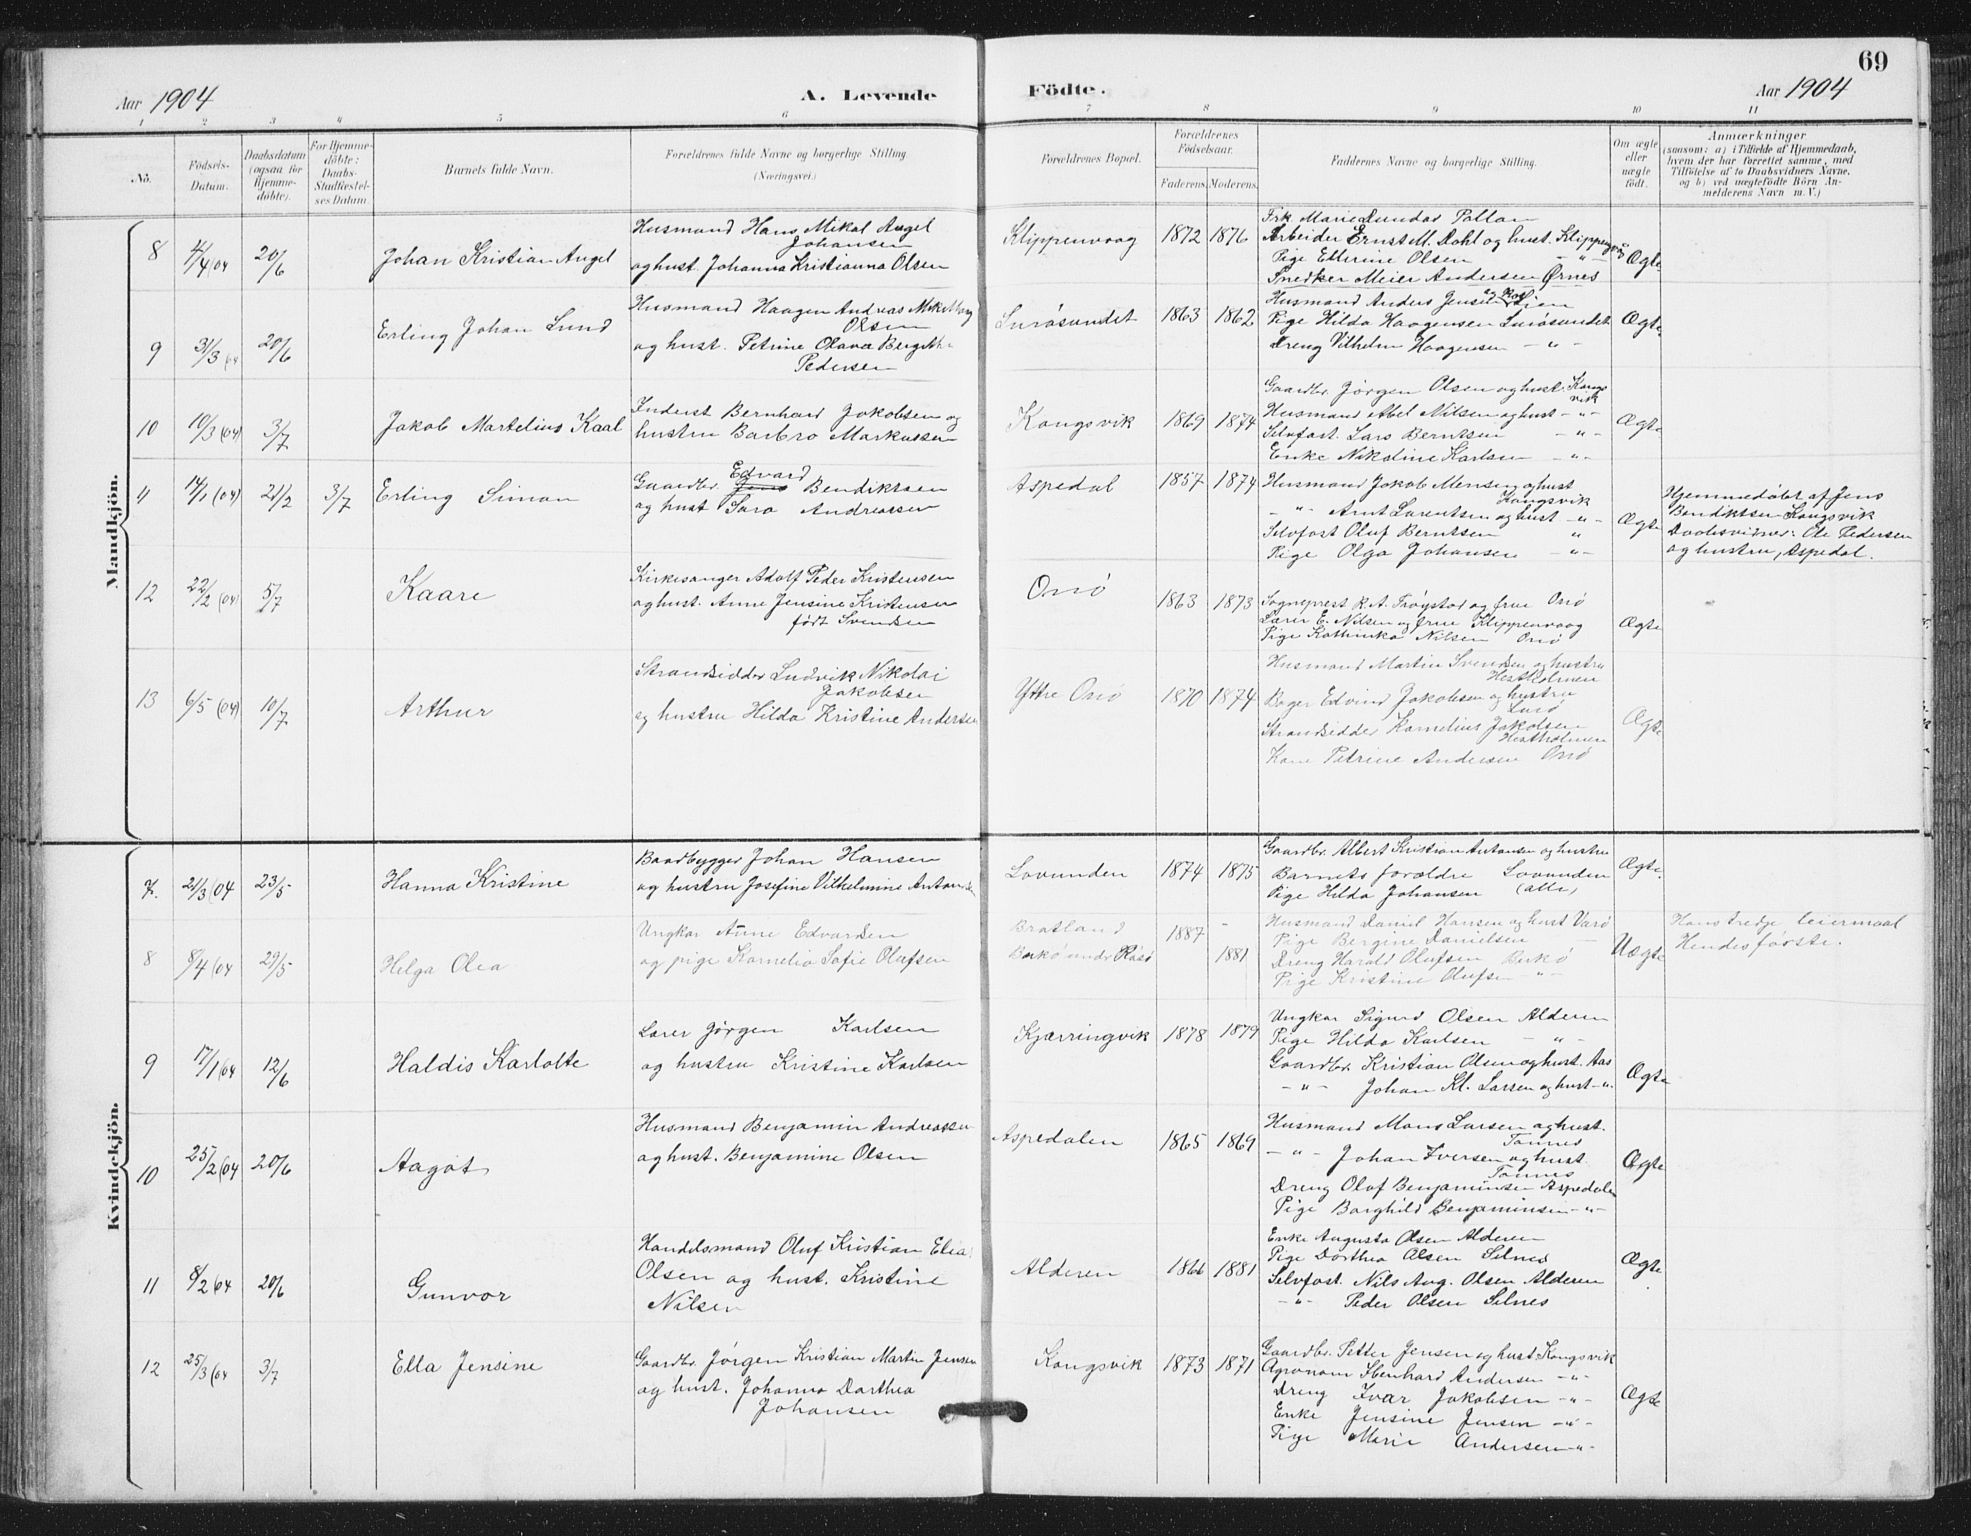 69
Aar 1904 A. Levende Födte. Aar 1904
1 2 3 4 5 6 7 8 9 10 11
No.
Födsels-Datum.
Daabsdatum (ogsaa for Hjemme-döbte).
For Hjemme-döbte: Daabs-Stadfæstel-ses Datum.
Barnets fulde Navn.
Forældrenes fulde Navne og borgerlige Stilling.
(Næringsvei.)
Forældrenes Bopæl.
Forældrenes Födselsaar.
Faderens. Moderens.
Faddernes Navne og borgerlige Stilling.
Om ægte eller uægte födt.
Anmærkninger
(saasom: a) i Tilfælde af Hjemmedaab, hvem der har forrettet samme, med Tilföielse af to Daabsvidners Navne, og b) ved uægtefödte Börn An-melderens Navn m. V.)
Mandkjön.
8 4/4 04 20/6 Johan Kristian Angel
Husmand Hans Mikal Angel
Johansen
og hust. Johanna Kristianna Olsen
Klippenvaag 1872 1876
Frk Marie Dundas
Arbeider Ernst M. Dahl og hust. Klippenvåg
Pige Etterine Olsen - " -
Snedker Meier Andersen Ørnes
Ægte
9 31/3 04 20/6 Erling Johan Lund
Husmand Haagen Andreas
Olsen
og hust. Petrine Olava Bergithe
Pedersen
Lurösundet 1863 1862
Husmand Anders Jensen
Pige Hilda Haagensen Lurösundet
Dreng Vilhelm Haagensen - " -
Ægte
10 10/3 (04) 3/7 Jakob Martelius Kaal
Inderst Bernhard Jakobsen og
hustru Barbro Markussen
Kongsvik 1869 1874
Gaardbr. Jørgen Olsen og hust. Kongsvik
Husmand Abel Nilsen og hust - " -
Selvfost. Lars Berntsen - " -
Enke Nikoline Karlsen - " -
Ægte
11 14/1 (04) 21/2 3/7 Erling Simon
Gaardbr. Edvard Bendiktsen
og hust Sara Andreassen
Aspedal 1857 1874
Husmand Jakob Mensen og hust
Kongsvik
- " - Arnt Larentsen og hust - " -
Selvfost Oluf Berntsen "
Pige Olga Johansen - " -
Ægte
Hjemmedøbt af Jens
Bendiktsen Kongsvik
Daabsvidner: Ole Pedersen
og hustru, Aspedal.
12 22/2 (04) 5/7 Kaare
Kirkesanger Adolf Peder Kristensen
og hust. Anne Jensine Kristensen
født Svendsen
Onö 1863 1873
Sogneprest R. A. Trøystad og frue Onö
Lærer E. Nilsen og frue Klippenvaag
Pige Kathinka Nilsen Onö
Ægte
13 6/5 (04) 10/7 Arthur
Strandsidder Ludvik Nikolai
Jakobsen
og hustru Hilda Kristine Andersen
Yttre Onö 1870 1874
Husmand Martin Svendsen og hustru
Hestholmen
Bager Edvind Jakobsen og hustru
Lurö
Strandsidder Kornelius Jakobsen
Hestholmen
Kone Petrine Andersen Onö
Ægte
Kvindekjön.
7. 21/3 (04 23/5 Hanna Kristine
Baadbygger Johan Hansen
og hustru Josefine Vilhelmine Antonsen
Lovunden 1874 1875
Gaardbr. Albert Kristian Antonsen og hustru
Barnets forældre Lovunden
Pige Hilda Johansen (alle)
Ægte.
8 8/4 (04 29/5 Helga Olea
Ungkar Anne Edvardsen
og pige Kornelia Sofie Olufsen
Bratland 1887 -
Berkö under 1881
Husmand Daniel Hansen og hust Varö
Pige Bergine Danielsen -
Dreng Harald Olufsen Berkö
Pige Kristine Olufsen - " -
Uægte
Hans tredje leiermaal
Hendes første.
9 17/1 (04 12/6 Haldis Karlotte
Lærer Jørgen Karlsen
og hustru Kristine Karlsen
Kjærringvik 1878 1879
Ungkar Sigurd Olsen Alderen
Pige Hilda Karlsen - " -
Gaardbr. Kristian Olsen og hust. Aas
- " - Johan Kl. Larsen og hust - " -
Ægte
10 25/2 (04 20/6 Aagot
Husmand Benjamin Andreassen
og hust. Benjamine Olsen
Aspedalen 1865 1869
Husmand Mons Larsen og hust.
Tonnes
- " - Johan Iversen og hust.
Tonnes
Dreng Olaf Benjaminsen Aspedalen
Pige Borghild Benjaminsen - " -
Ægte
11 8/2 04 20/6 Gunvor
Handelsmand Oluf Kristian Elia
Olsen og hust. Kristine
Nilsen
Alderen 1866 1881
Enke Augusta Olsen Alderen
Pige Dorthea Olsen Selnes
Selvfost. Nils Aug. Olsen Alderen
- " - Peder Olsen Selnes
Ægte
12 25/3 (04 3/7 Ella Jensine
Gaardbr. Jörgen Kristian Martin Jensen
og hust. Johanna Dorthea
Johansen
Kongsvik 1873 1871
Gaardbr. Petter Jensen og hust. Kongsvik
Agronom Ebenhard Andersen - " -
Dreng Ivar Jakobsen - " -
Enke Jensine Jensen - " -
Pige Marie Andersen - " -
Ægte